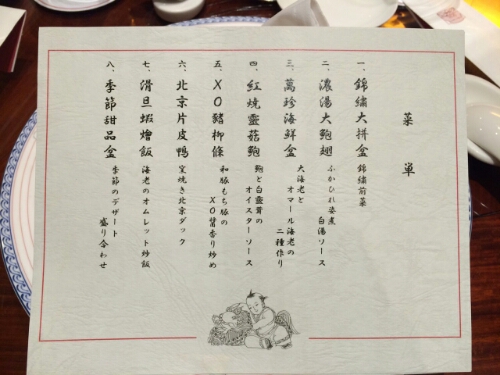 菜単
一、錦繡大拼盆
錦繡前菜
二、濃湯大鮑翅
ふかひれ姿煮
白湯ソース
三、萬珍海鮮盒
大海老と
オマール海老の
二種作り
四、紅焼靈菇鮑
鮑と白霊茸の
オイスターソース
五、XO豬柳條
和豚もち豚の
XO醤香り炒め
六、北京片皮鴨
窯焼き北京ダック
七、滑旦蝦燴飯
海老のオムレット炒飯
八、季節甜品盒
季節のデザート
盛り合わせ